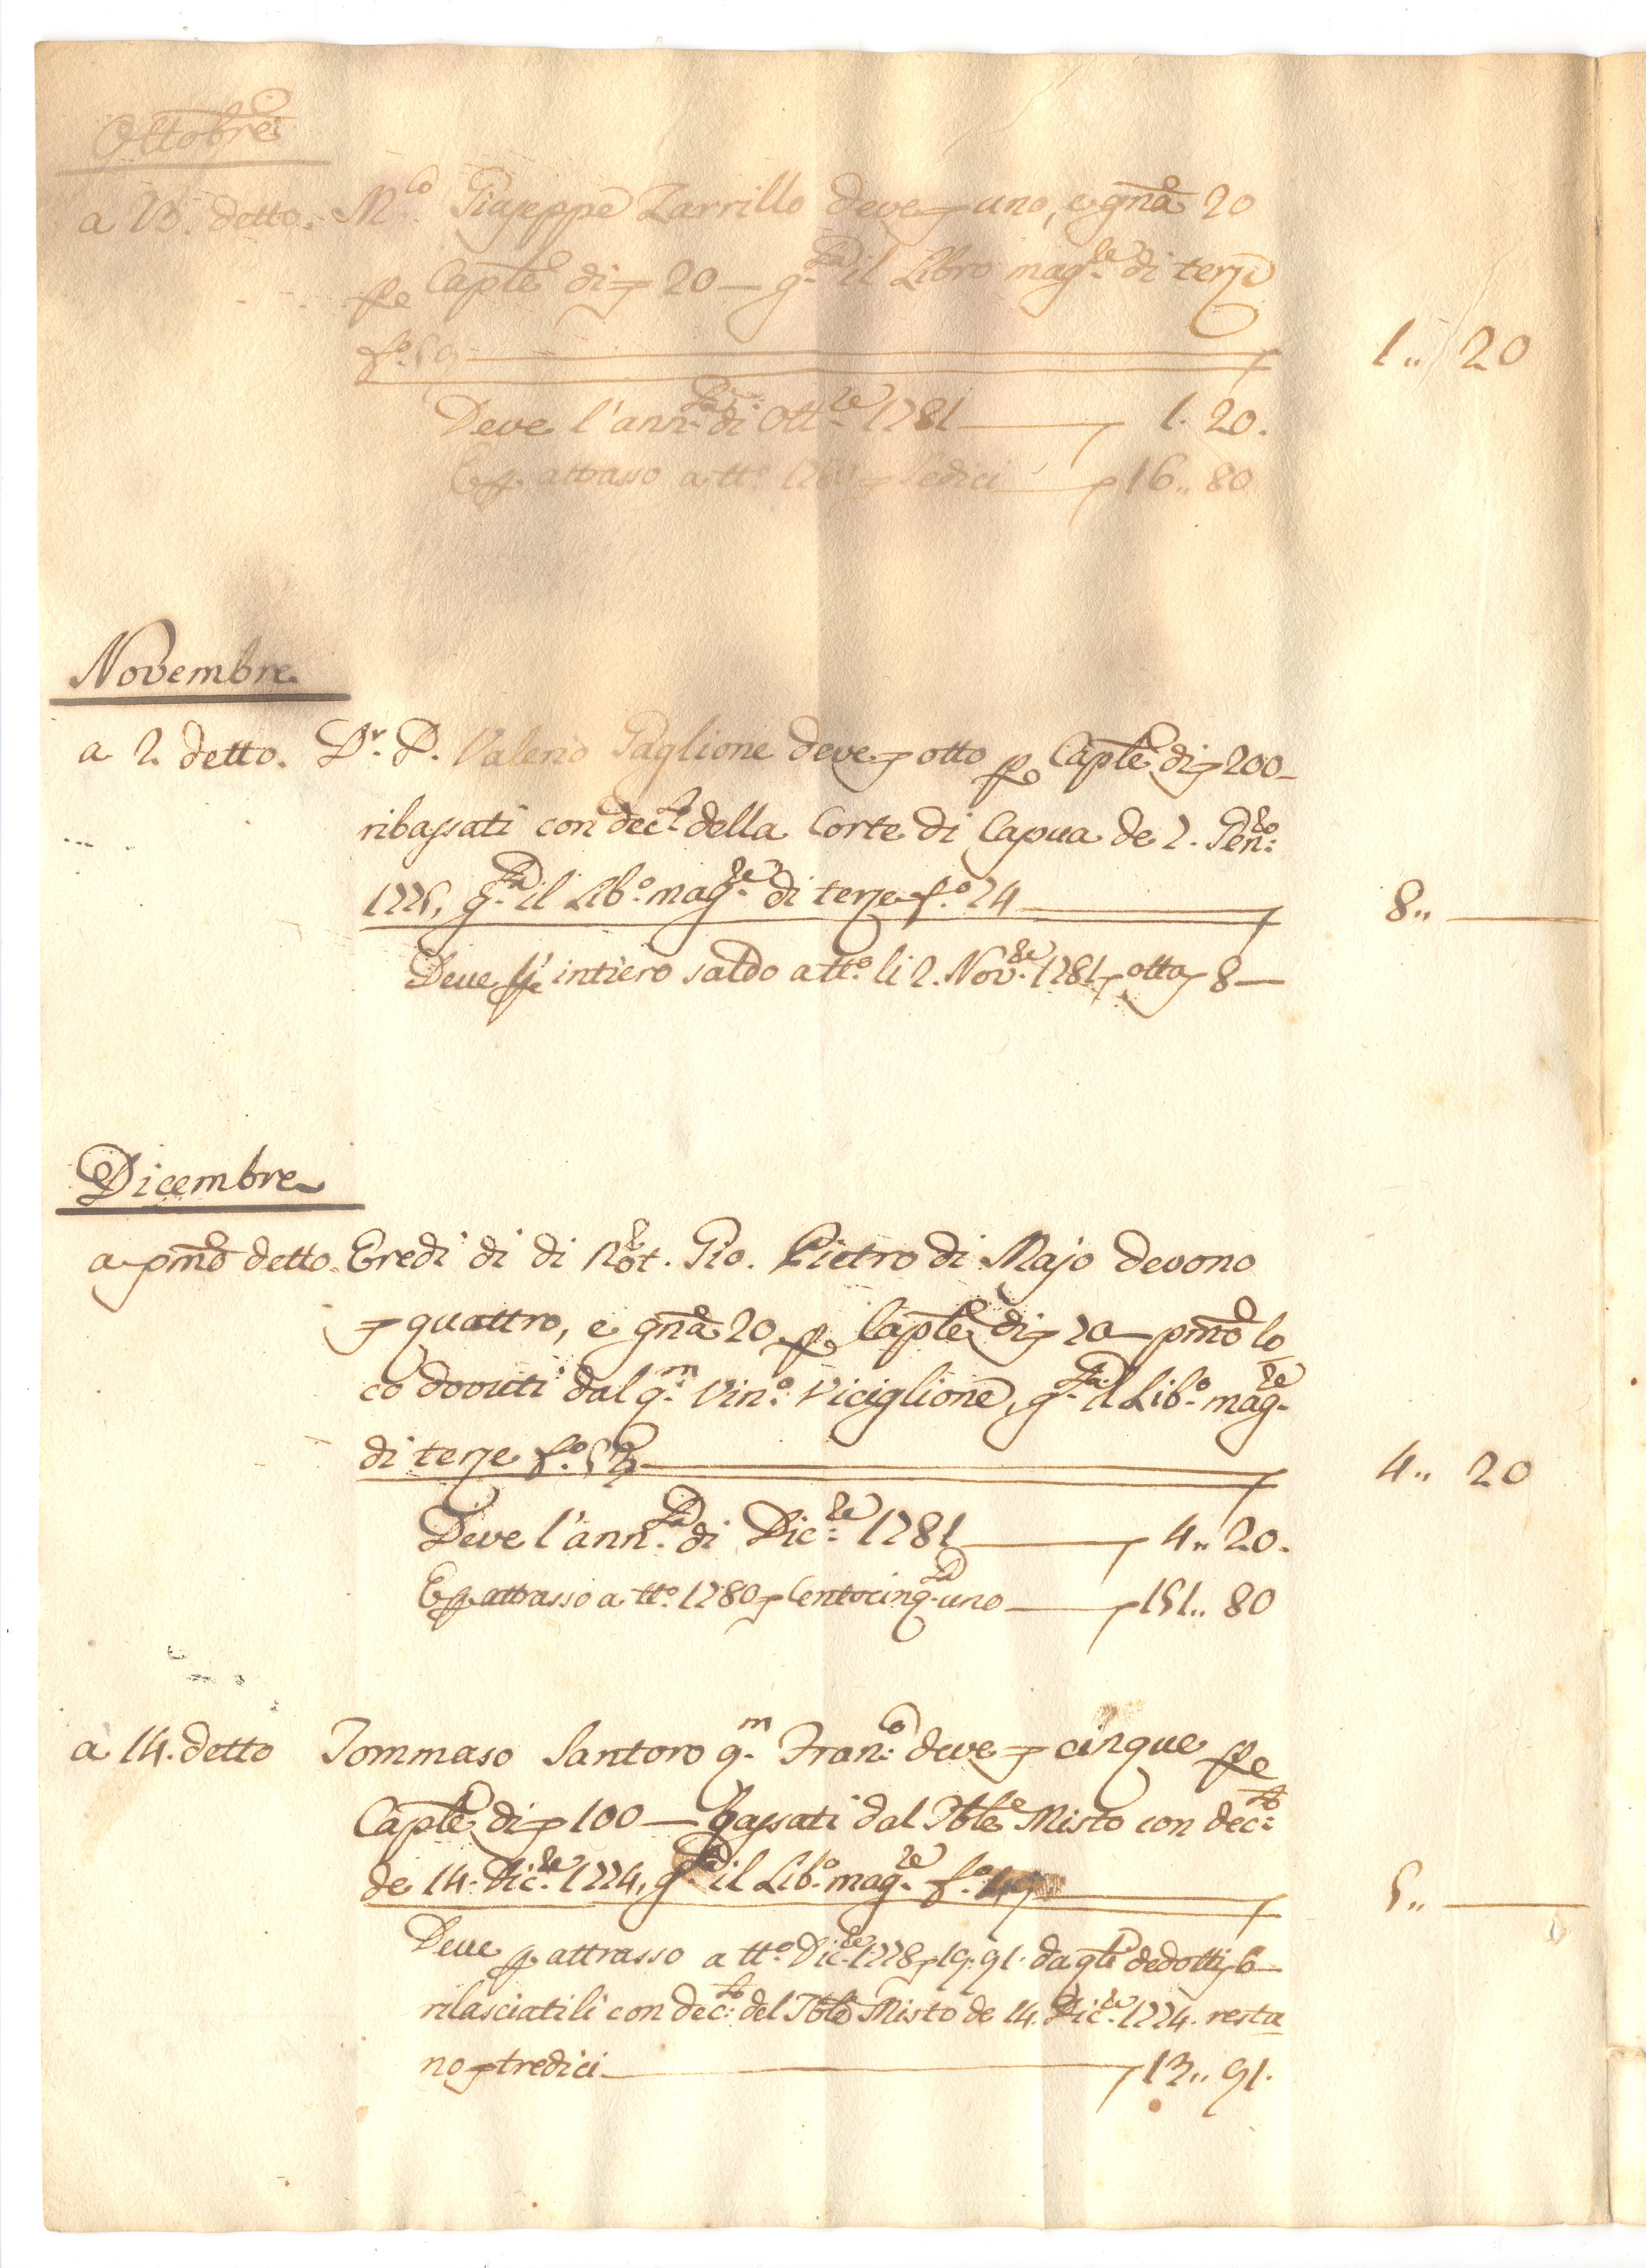 Ottobre
a 13. detto. M.co Giuseppe Zarrillo deve uno, e gna 20
pe Caple di 20 — g.ta il Libro mag.le di terze
f.o 59 1.. 20
Deve l'ann.ta di Ott.re 1781 1. 20.
E p. attrasso a tt.o 1780 Sedici 16.. 80
Novembre
a 2. detto. D.r D. Valerio Paglione deve otto pe Caple di 200
ribassati con dec.to della Corte di Capua de 2. Gen.ro
1776, g.ta il Lib.o mag.le di terze f.o 24 8..
Deve pe intiero saldo a tt.o li 2. Nov.re 1781 otto 8 —
Dicembre
a pmo detto. Eredi di di Not.r Gio. Pietro di Majo devono
quattro, e gna 20 pe Caple di 70 — pmo lo
co dovuti dal q.m Vin.o Viciglione, g.ta il Lib.o mag.le
di terze f.o 4.. 20
Deve l'ann.ta di Dic.re 1781 4.. 20.
E p. attrasso a tt.o 1780 Centocinq.ta uno 151.. 80
a 14. detto Tommaso Santoro q.m Fran.co deve cinque pe
Caple di 100 — bassati dal Tble Misto con dec.to
de 14. Dic.re 1774, g.ta il Lib.o mag.le f.o 49 5..
Deve p. attrasso a tt.o Dic.re 1778 19. 91. da qli dedotti 6 —
rilasciatili con dec.to del Tble Misto de 14. Dic.re 1774. resta
no tredici 13.. 91.